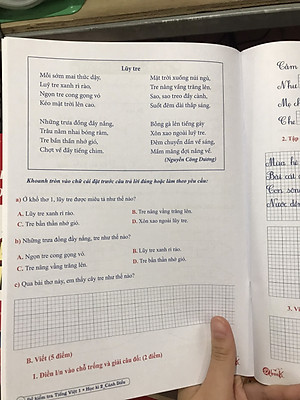 Lũy tre
Mỗi sớm mai thức dậy,
Luỹ tre xanh rì rào,
Ngọn tre cong gọng vó
Kéo mặt trời lên cao.
Những trưa đồng đầy nắng,
Trâu nằm nhai bóng râm,
Tre bần thần nhớ gió,
Chợt về đầy tiếng chim.
Mặt trời xuống núi ngủ,
Tre nâng vầng trăng lên.
Sao, sao treo đầy cành,
Suốt đêm dài thắp sáng.
Bỗng gà lên tiếng gáy
Xôn xao ngoài luỹ tre.
Đêm chuyển dần về sáng,
Mầm măng đợi nắng về.
(Nguyễn Công Dương)
Khoanh tròn vào chữ cái đặt trước câu trả lời đúng hoặc làm theo yêu cầu:
a) Ở khổ thơ 1, lũy tre được miêu tả như thế nào?
A. Lũy tre xanh rì rào.
B. Tre nâng vầng trăng lên.
C. Tre bần thần nhớ gió.
D. Xôn xao ngoài lũy tre.
b) Những trưa đồng đầy nắng, tre như thế nào?
A. Ngọn tre cong gọng vó.
B. Lũy tre xanh rì rào.
C. Tre nâng vầng trăng lên.
D. Tre bần thần nhớ gió.
c) Qua bài thơ này, em thấy cây tre như thế nào?
B. Viết (5 điểm)
1. Điền l/n vào chỗ trống và giải câu đố: (2 điểm)
Đề kiểm tra Tiếng Việt 2 - Học kì 2_Cánh Diều
Cầm
Như
Mẹ
Che
2. Tập
Mùa hè
Con sông
3. Vi